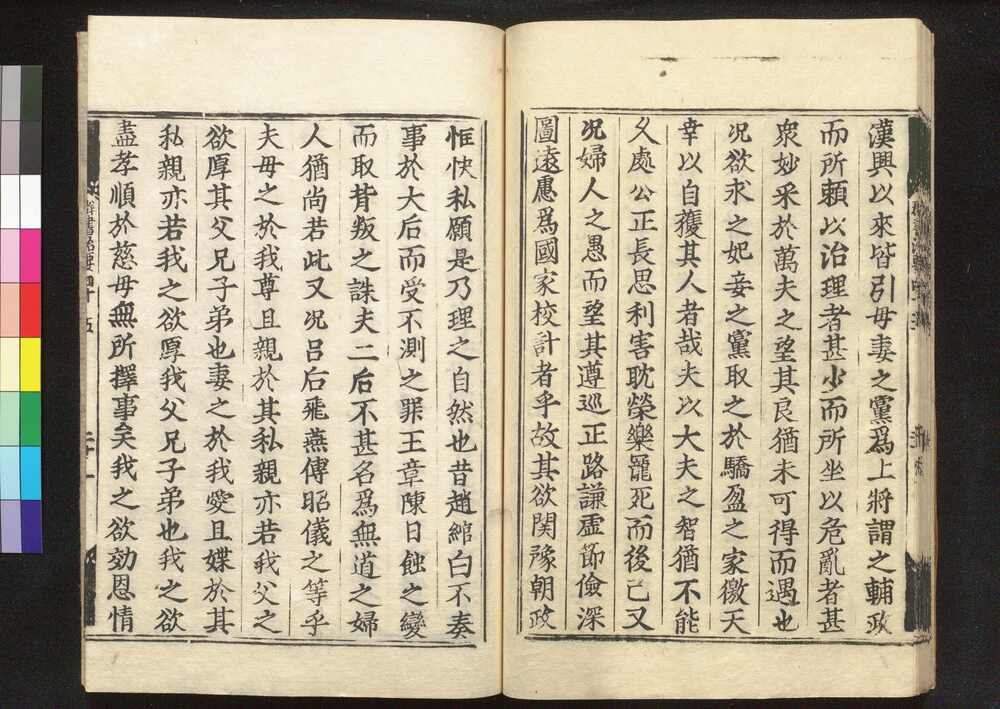 漢興以來皆引母妻之黨爲上將謂之輔政
而所賴以治理者甚少而所坐以危亂者甚
衆妙采於萬夫之望其良猶未可得而遇也
况欲求之妃妾之黨取之於驕盈之家徼天
幸以自獲其人者哉夫以大夫之智猶不能
久處公正長思利害耽榮樂寵死而後已又
况婦人之愚而望其遵巡正路謙虛節儉深
圖遠慮爲國家校計者乎故其欲関豫朝政
惬快私願是乃理之自然也昔趙綰白不奏
事於大后而受不測之罪王章陳日蝕之變
而取背叛之誅夫二后不甚名爲無道之婦
人猶尚若此又况呂后飛燕傅昭儀之等乎
夫母之於我尊且親於其私親亦若我父之
欲厚其父兄子弟也妻之於我愛且媟於其
私親亦若我之欲厚我父兄子弟也我之欲
盡孝順於慈母無所擇事矣我之欲効恩情
群書治要四十五